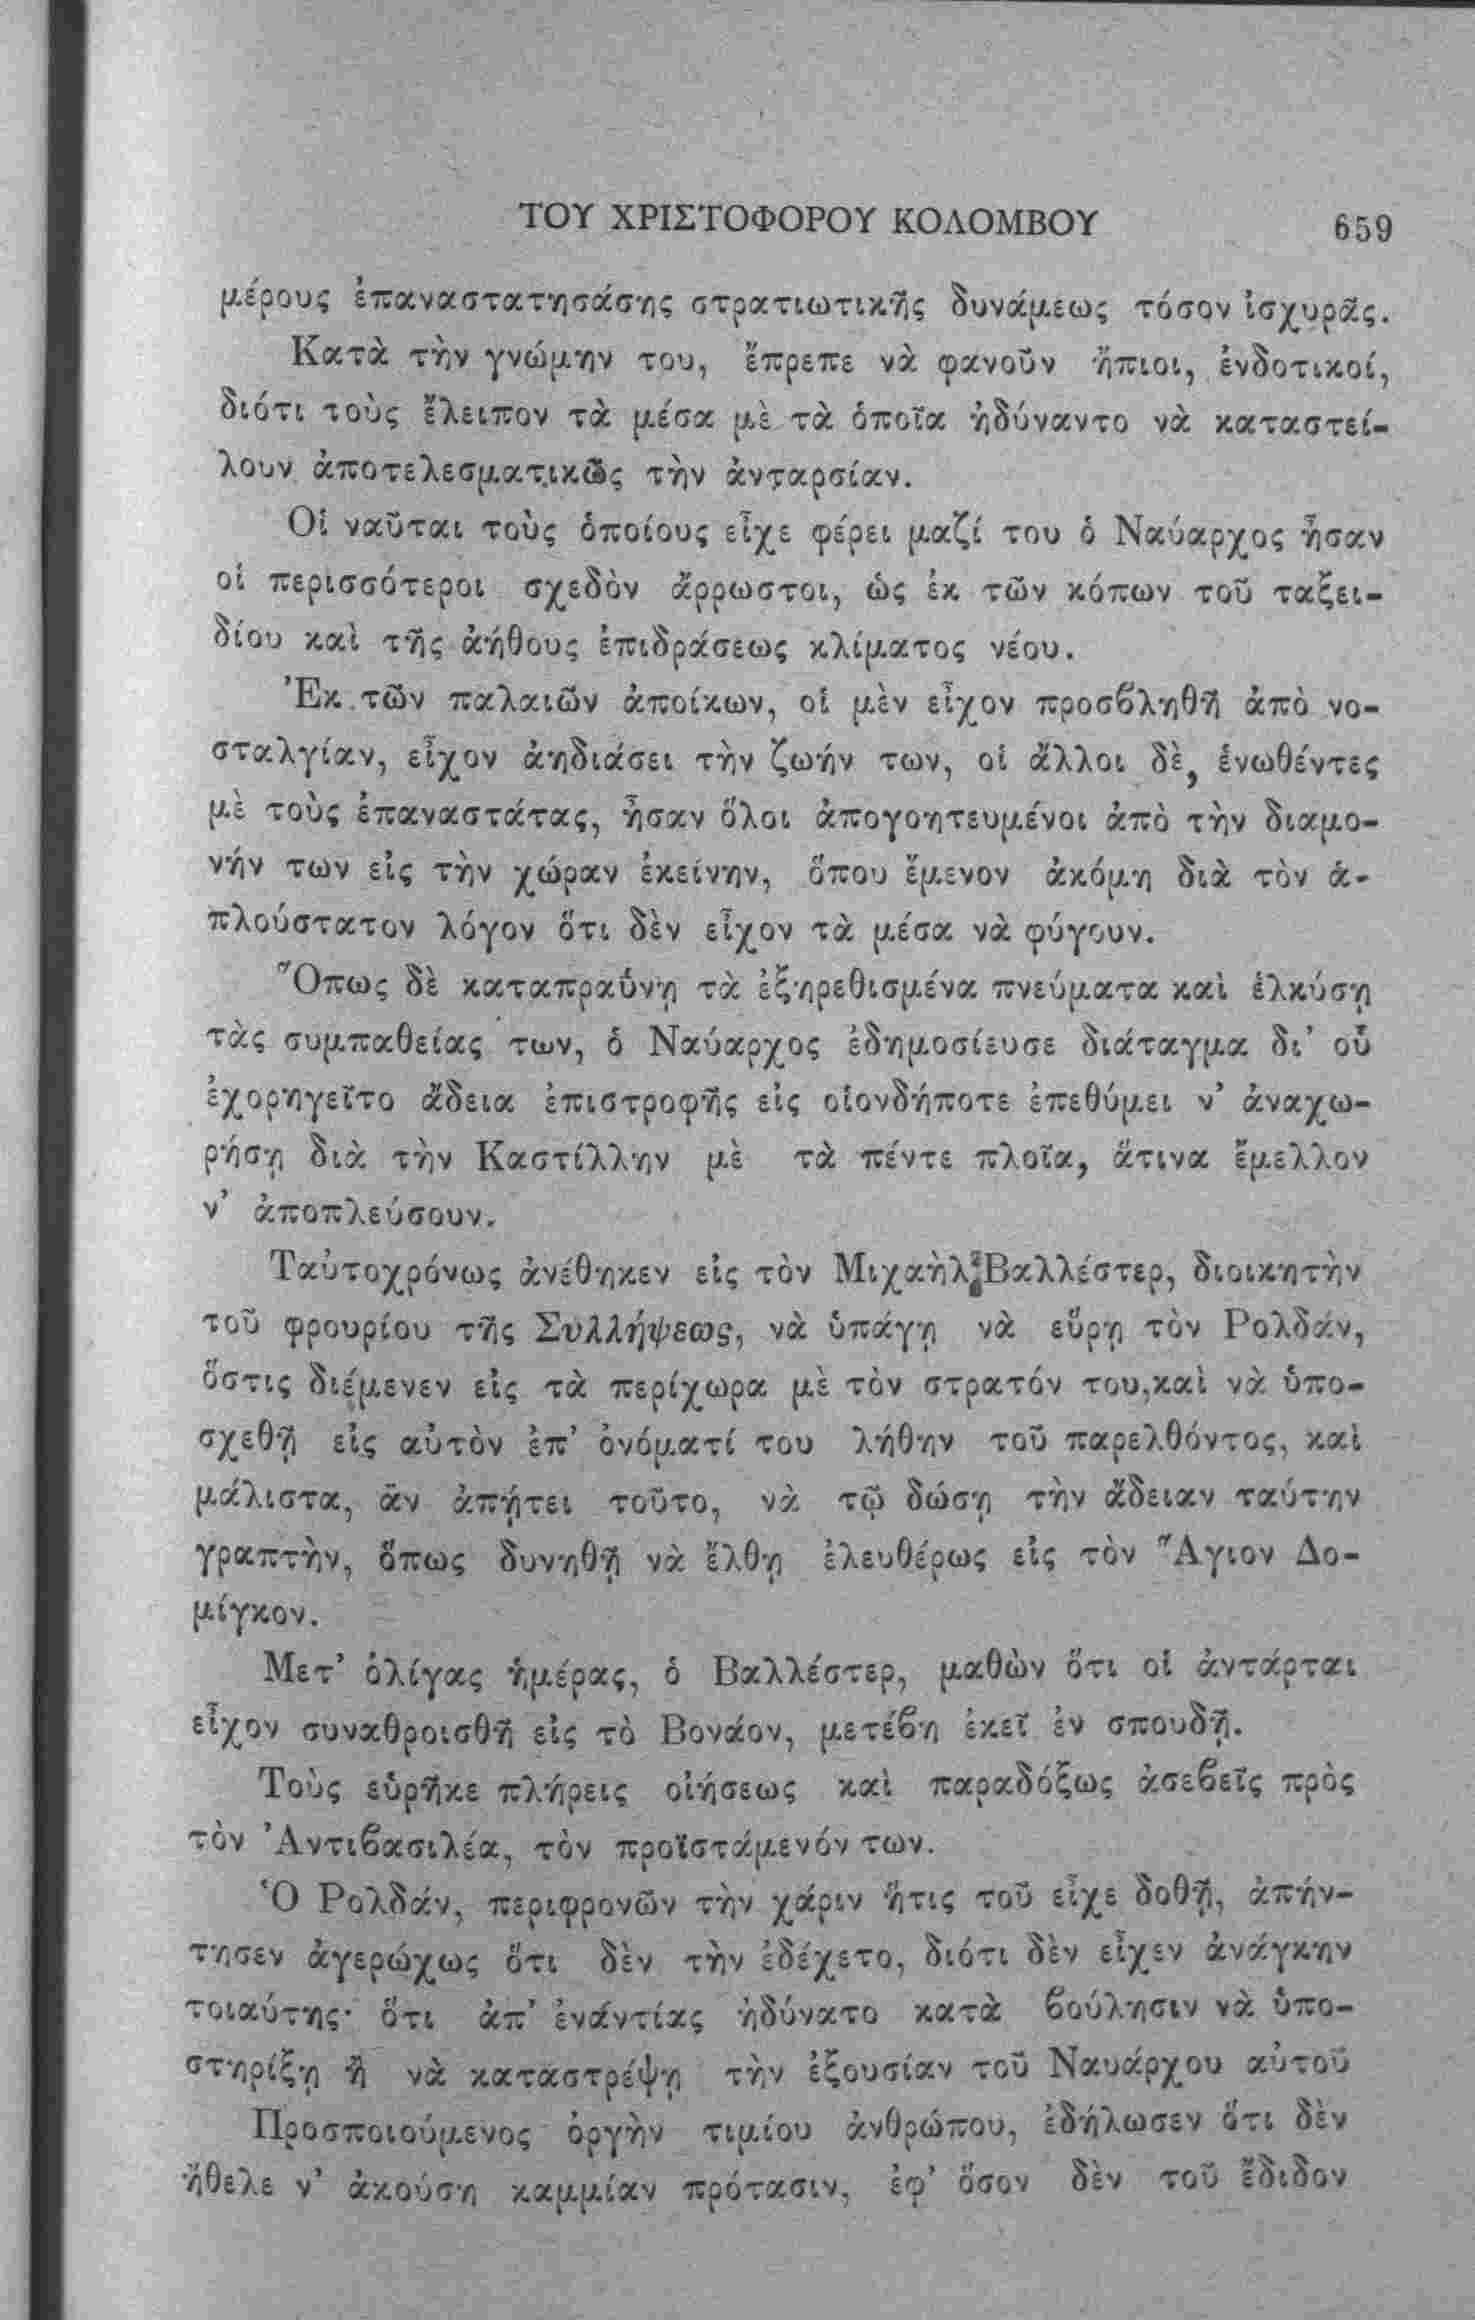 ΤΟΥ ΧΡΙΣΤΟΦΟΡΟΥ ΚΟΛΟΜΒΟΥ 659
μέρους ἐπαναστατησάσης στρατιωτικῆς δυνάμεως τόσον ἰσχυρᾶς.
Κατὰ τὴν γνώμην του, ἔπρεπε νὰ φανοῦν ἤπιοι, ἐνδοτικοί,
διότι τοὺς ἔλειπον τὰ μέσα μὲ τὰ ὁποῖα ἠδύναντο νὰ καταστεί-
λουν ἀποτελεσματικῶς τὴν ἀνταρσίαν.
Οἱ ναῦται τοὺς ὁποίους εἶχε φέρει μαζί του ὁ Ναύαρχος ἦσαν
οἱ περισσότεροι σχεδὸν ἄρρωστοι, ὡς ἐκ τῶν κόπων τοῦ ταξει-
δίου καὶ τῆς ἀήθους ἐπιδράσεως κλίματος νέου.
Ἐκ τῶν παλαιῶν ἀποίκων, οἱ μὲν εἶχον προσβληθῆ ἀπὸ νο-
σταλγίαν, εἶχον ἀηδιάσει τὴν ζωήν των, οἱ ἄλλοι δὲ, ἑνωθέντες
μὲ τοὺς ἐπαναστάτας, ἦσαν ὅλοι ἀπογοητευμένοι ἀπὸ τὴν διαμο-
νήν των εἰς τὴν χώραν ἐκείνην, ὅπου ἔμενον ἀκόμη διὰ τὸν ἁ-
πλούστατον λόγον ὅτι δὲν εἶχον τὰ μέσα νὰ φύγουν.
Ὅπως δὲ καταπραΰνῃ τὰ ἐξηρεθισμένα πνεύματα καὶ ἑλκύσῃ
τὰς συμπαθείας των, ὁ Ναύαρχος ἐδημοσίευσε διάταγμα δι' οὗ
ἐχορηγεῖτο ἄδεια ἐπιστροφῆς εἰς οἱονδήποτε ἐπεθύμει ν' ἀναχω-
ρήσῃ διὰ τὴν Καστίλλην μὲ τὰ πέντε πλοῖα, ἅτινα ἔμελλον
ν' ἀποπλεύσουν.
Ταὐτοχρόνως ἀνέθηκεν εἰς τὸν Μιχαὴλ Βαλλέστερ, διοικητὴν
τοῦ φρουρίου τῆς Συλλήψεως, νὰ ὑπάγῃ νὰ εὕρῃ τὸν Ρολδάν,
ὅστις διέμενεν εἰς τὰ περίχωρα μὲ τὸν στρατόν του,καὶ νὰ ὑπο-
σχεθῇ εἰς αὐτὸν ἐπ' ὀνόματί του λήθην τοῦ παρελθόντος, καὶ
μάλιστα, ἂν ἀπῄτει τοῦτο, νὰ τῷ δώσῃ τὴν ἄδειαν ταύτην
γραπτὴν, ὅπως δυνηθῇ νὰ ἔλθῃ ἐλευθέρως εἰς τὸν Ἅγιον Δο-
μίγκον.
Μετ' ὀλίγας ἡμέρας, ὁ Βαλλέστερ, μαθὼν ὅτι οἱ ἀντάρται
εἶχον συναθροισθῆ εἰς τὸ Βονάον, μετέβη ἐκεῖ ἐν σπουδῇ.
Τοὺς εὑρῆκε πλήρεις οἰήσεως καὶ παραδόξως ἀσεβεῖς πρὸς
τὸν Ἀντιβασιλέα, τὸν προϊστάμενόν των.
Ὁ Ρολδάν, περιφρονῶν τὴν χάριν ἥτις τοῦ εἶχε δοθῇ, ἀπήν-
τησεν ἀγερώχως ὅτι δὲν τὴν ἐδέχετο, διότι δὲν εἶχεν ἀνάγκην
τοιαύτης· ὅτι ἀπ' ἐναντίας ἠδύνατο κατὰ βούλησιν νὰ ὑπο-
στηρίξῃ ἢ νὰ καταστρέψῃ τὴν ἐξουσίαν τοῦ Ναυάρχου αὐτοῦ
Προσποιούμενος ὀργὴν τιμίου ἀνθρώπου, ἐδήλωσεν ὅτι δὲν
ἤθελε ν' ἀκούσῃ καμμίαν πρότασιν, ἐφ' ὅσον δὲν τοῦ ἔδιδον